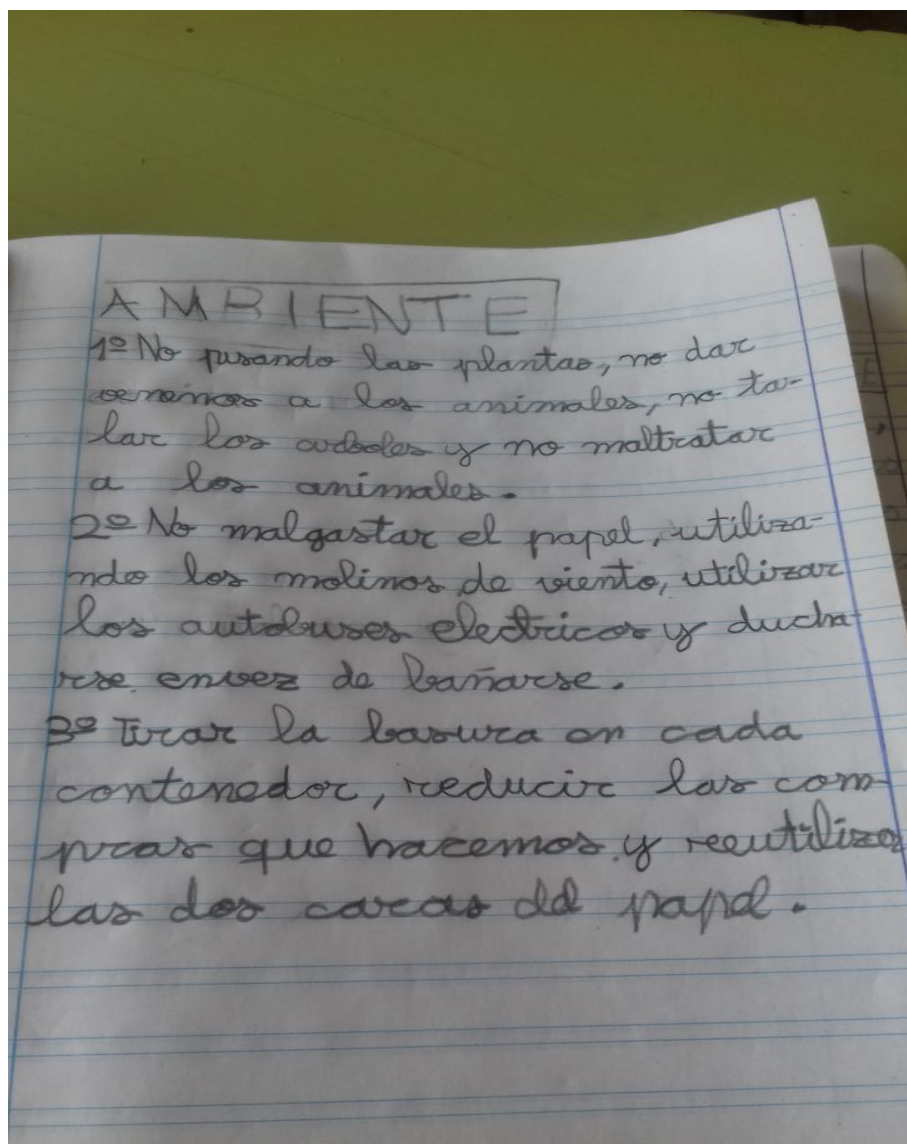 AMBIENTE
1º No pisando las plantas, no dar
venenos a los animales, no ta-
lar los arboles y no maltratar
a los animales.
2º No malgastar el papel, utiliza-
ndo los molinos de viento, utilizar
los autobuses electricos y ducha-
rse envez de bañarse.
3º Tirar la basura en cada
contenedor, reducir las com-
pras que hacemos y reeutilizar
las dos caras del papel.